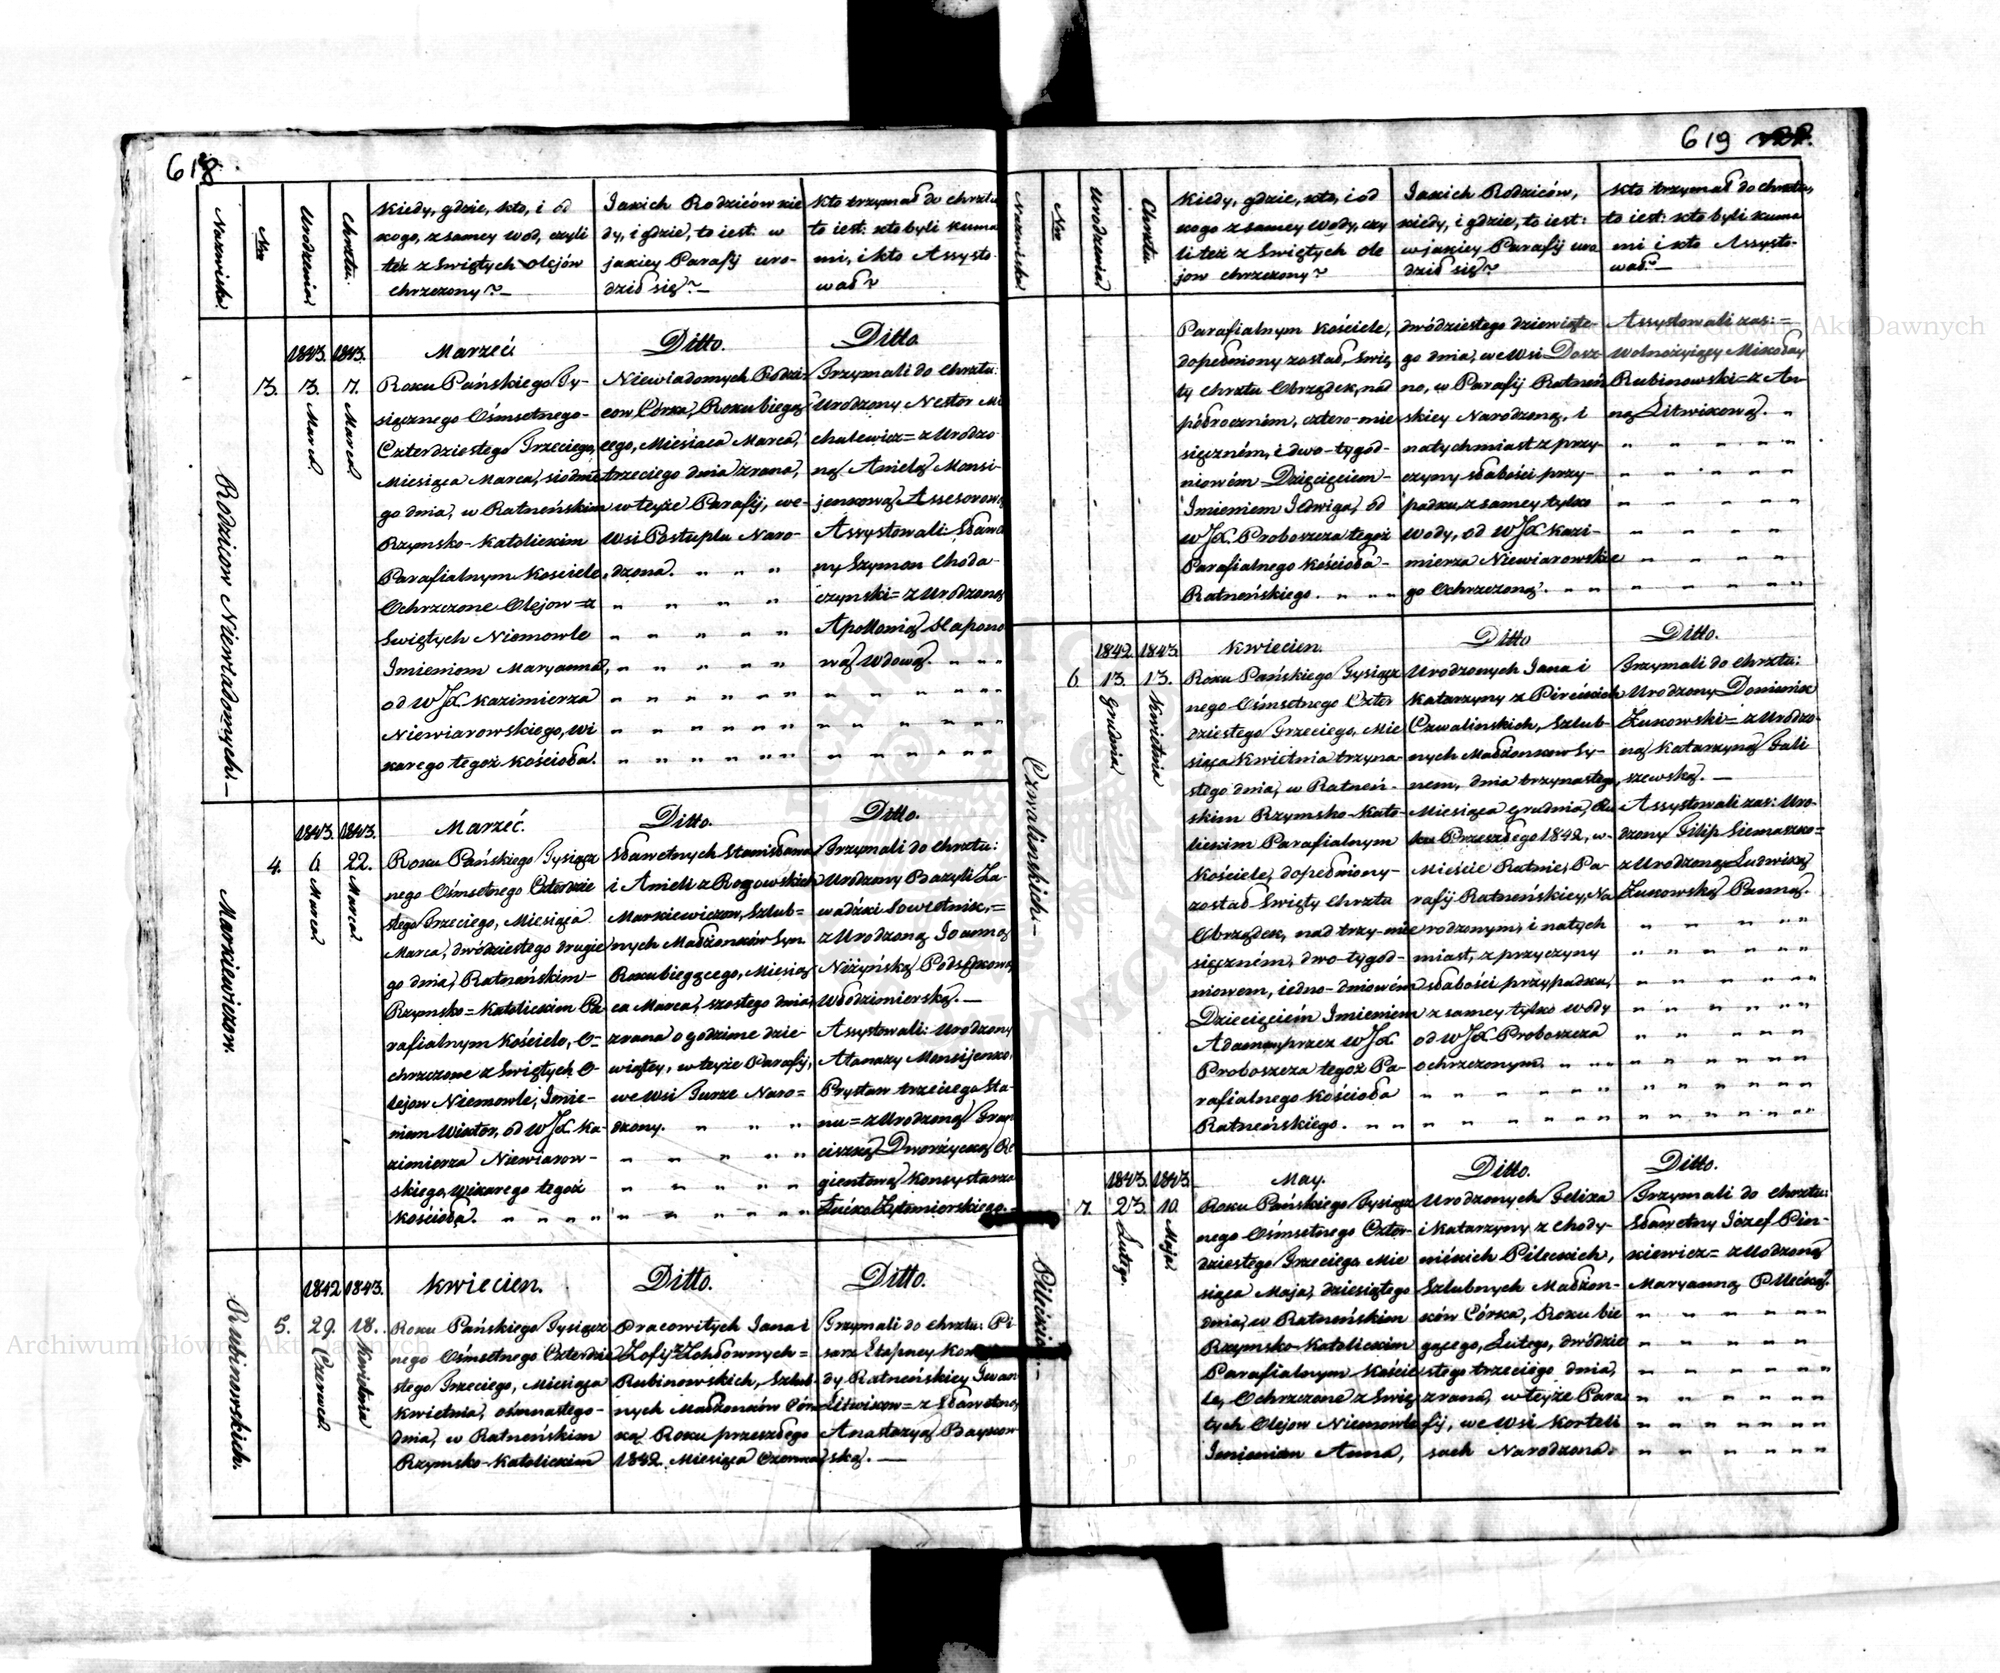 618
Nazwiska
Nro
Urodzenia
Chrztu.
Kiedy, gdzie, kto, i od
kogo, z samey wod, czyli
też z Swiętych Olejów
chrzczony?—
Jakich Rodziców kie
dy, i gdzie, to iest: w
jakiey Parafij uro-
dził się?—
Kto trzymał do chrztu
to iest: kto byli kuma
mi, i kto Assysto-
wał?
Rodziców Niewiadomych.—
1843. 1843.
3. 3. Marca 7. Marca
Marzec.
Roku Pańskiego Ty-
siącznego Ośmsetnego-
Czterdziestego Trzeciego,
Miesiąca Marca, siódme
go dnia, w Ratneńskim
Rzymsko-Katolickim
Parafialnym Kościele,
Ochrzczone Olejow=z
Swiętych Niemowle
Imieniem Maryanna,
od WJX Kazimierza
Niewiarowskiego, Wi
karego tegoż Kościoła.
Ditto.
Niewiadomych Rodzi-
ców Córka, Roku biegą
cego, Miesiąca Marca,
trzeciego dnia zrana,
w teyże Parafij, we-
Wsi Postuplu Naro-
dzona.
Ditto
Trzymali do chrztu:
Urodzony Nestor Mi
chalewicz=z Urodzo
ną Anielą Monsi-
jenkową Assesorową
Assystowali: Sławe
ny Szymon Choda-
czynski=z Urodzoną
Apollonią Słapono
wą Wdową.
Markiewiczow.
1843. 1843.
4. 6 Marca 22. Marca
Marzeć.
Roku Pańskiego Tysiącz
nego Ośmsetnego Czterdzie
stego Trzeciego, Miesiąca
Marca, dwódziestego drugie
go dnia, Ratneńskim-
Rzymsko=Katolickim Pa
rafialnym Kościele, O=
chrzczone z Swiętych O-
lejow Niemowle, Imie-
niem Wiktor, od WJX Ka-
zimierza Niewiarow-
skiego, Wikarego tegoż
Kościoła.
Ditto.
Sławetnych Stanisława
i Anieli z Rogowskich
Markiewiczow, Szlub=
nych Małżonków Syn
Roku biegącego, Miesią-
ca Marca, szostego dnia,
zrana o godzinie dzie-
wiątey, w teyże Parafij,
we Wsi Turze Naro=
dzony.
Ditto.
Trzymali do chrztu:
Urodzony Bazyli Za-
wadzki Sowietnik,=
z Urodzoną Joanną
Niżyńską Podsędkową
Włodzimierską.—
Assystowali: Urodzony
Atanazy Monsijenko,
Prystaw trzeciego Sta-
nu=z Urodzoną Fran
ciszką Dworżycką Re
gientową Konsystarza
Łucko Żytomierskiego.
Rubinowskich.
1842 1843.
5. 29. Czerwca 18. Kwietnia
Kwiecien.
Roku Pańskiego Tysiącz
nego Ośmsetnego Czterdzie
stego Trzeciego, Miesiąca
Kwietnia, ośmnastego-
dnia, w Ratneńskim
Rzymsko-Katolickim
Ditto.
Pracowitych Jana i
Rubinowskich, Szlub-
nych Małżonków Cór
ką Roku przeszłego
1842. Miesiąca Czerwca
Ditto.
Trzymali do chrztu: Pi
sarz Etapney Kom
dy Ratneńskiey Iwan
Litwinow=z Sławetną
Anastazyą Baykow
ską.—
619
Nazwiska
Nro
Urodzenia
Chrztu.
Kiedy, gdzie, kto, i od
kogo z samey wody, czy
li też z Swiętych Ole
jow chrzczony?
Jakich Rodziców,
kiedy, i gdzie, to iest:
w jakiey Parafij uro
dził się?
Kto trzymał do chrztu,
to iest: kto byli kuma
mi i kto Assysto-
wał?—
Parafialnym Kościele,
dopełniony został, Swię
ty Chrztu Obrządek, nad
półrocznem, cztero-mie
sięczném, i dwo-tygod-
niowém Dzięcięciem-
Imieniem Jedwiga, od
WJX. Proboszcza tegoż
Parafialnego Kościoła-
Ratneńskiego.
dwódziestego dziewiąte-
go dnia, we Wsi Dosz
no, w Parafij Ratneń
skiey Narodzoną, i
natychmiast z przy-
czyny słabości przy-
padku, z samey tylko
Wody, od WJX Kazi-
mierza Niewiarowskie
go Ochrzczoną.
Assystowali zas:=
Wolnożyjący Mikołay
Rubinowski=z An-
ną Litwinową.
Czwalinskich.—
1842. 1843
6. 13. Grudnia 13. Kwietnia
Kwiecien.
Roku Pańskiego Tysiącz
nego Ośmsetnego Czter
dziestego Trzeciego, Mie
siąca Kwietnia trzyna-
stego dnia, w Ratneń-
skim Rzymsko-Kato-
lickim Parafialnym
Kościele, dopełniony-
został Swięty Chrztu
Obrządek, nad trzy-mie
sięczném, dwo-tygod-
niowem, iedno-dniowém
Dziecięciém Imieniem
Adamem, przez WJX
Proboszcza tegoż Pa-
rafialnego Kościoła
Ratneńskiego.
Ditto
Urodzonych Jana i
Czwalinskich, Szlub-
nych Małżonkow Sy-
nem, dnia trzynastego,
Miesiąca Grudnia, Ro
ku Przeszłego 1842, w-
Mieście Ratnie, Pa-
rafij Ratneńskiey, Na
rodzonym, i natych
miast, z przyczyny
słabości przypadku,
z samey tylko wody
od WJX Proboszcza
ochrzczonym.
Ditto.
Trzymali do chrztu:
Urodzony Dominik
Żukowski=z Urodzo-
ną Katarzyną Gali
szewską.—
Assystowali zas: Uro-
dzony Filip Siemaszko=
z Urodzoną Ludwiką
Żukowską Panną.
Pileckich.—
1843. 1843
7. 23. Lutego. 10. Maja
May.
Roku Pańskiego Tysiącz
nego Ośmsetnego Czter-
dziestego Trzeciego Mie
siąca Maja, dziesiątego
dnia, w Ratneńskim
Rzymsko-Katolickim
Parafialnym Koście
le, Ochrzczone z Swię
tych Olejow Niemowle
Imieniem Anna,
Ditto.
Urodzonych Felixa
i Katarzyny z Chody-
nickich Pileckich,
Szlubnych Małżon-
ków Córka, Roku bie
gącego, Lutego, dwódzie
stego trzeciego dnia,
zrana, w teyże Para
fij, we Wsi Korteli
sach Narodzona.
Ditto.
Trzymali do chrztu:
Sławetny Józef Pin-
kiewicz=z Urodzoną
Maryanną Pilecką.
Archiwum Główne Akt Dawnych
Archiwum Główne Akt Dawnych